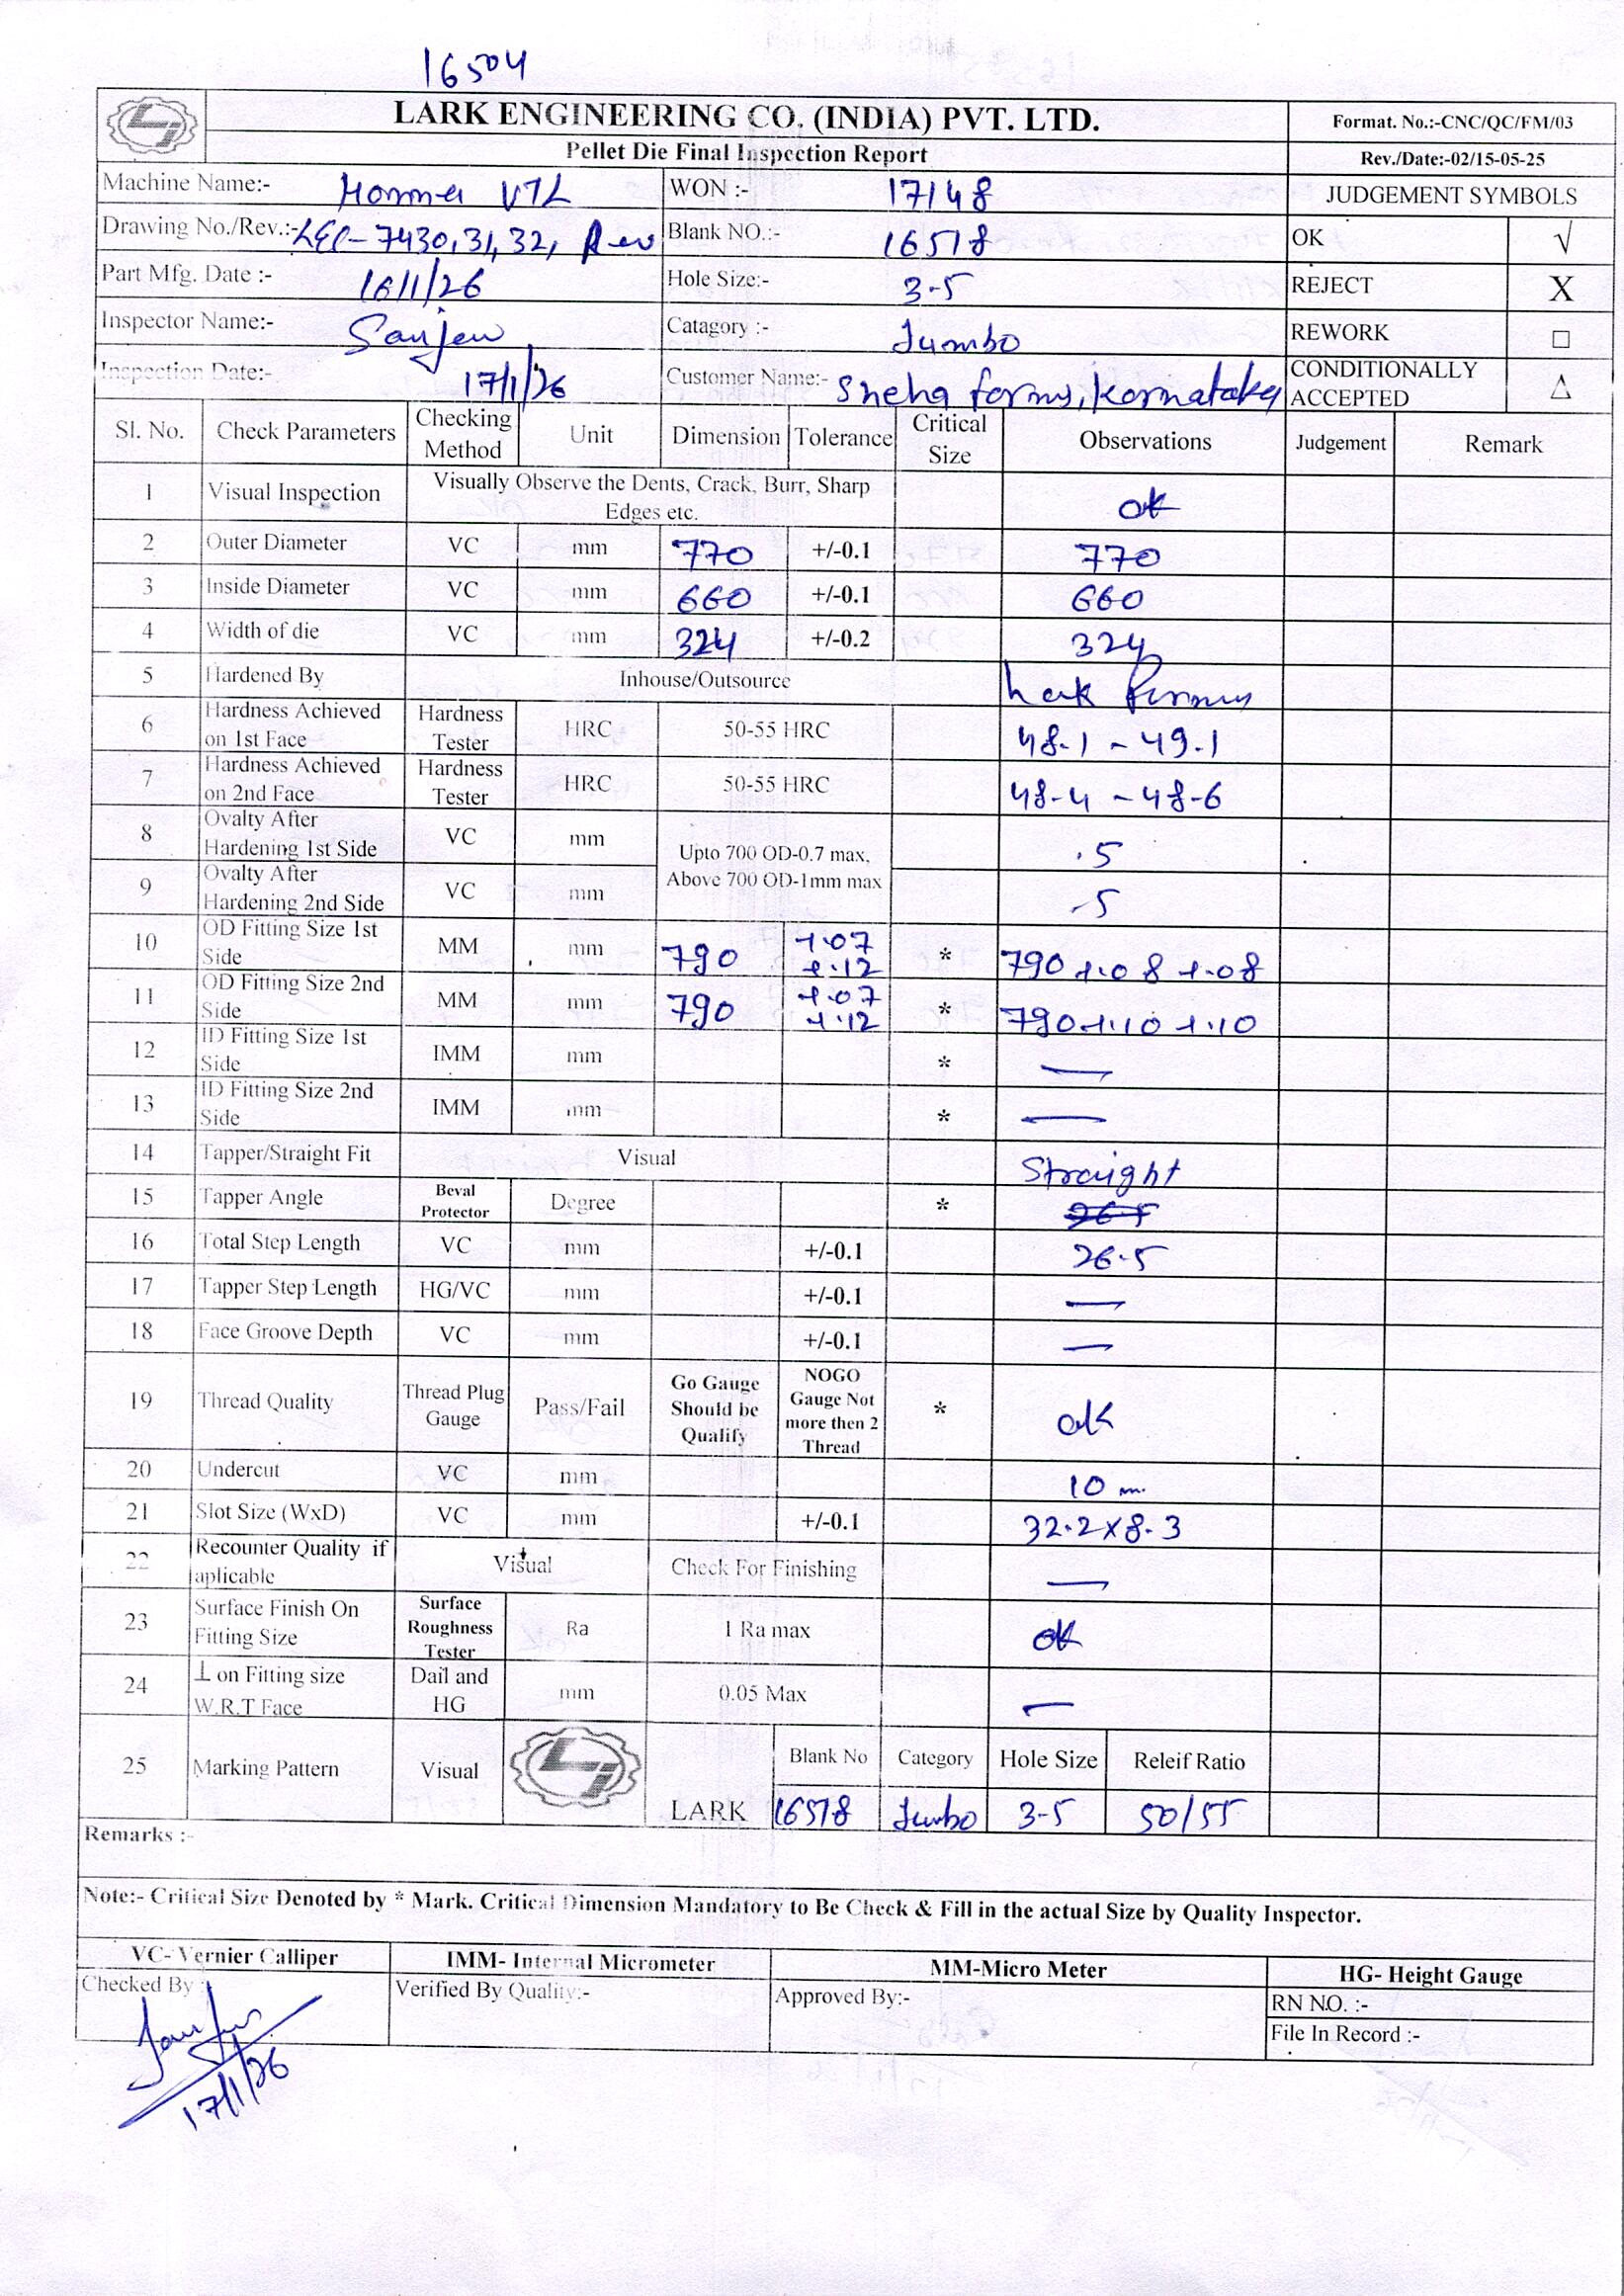 16504
LARK ENGINEERING CO. (INDIA) PVT. LTD.
Format. No.:-CNC/QC/FM/03
Pellet Die Final Inspection Report
Rev./Date:-02/15-05-25
Machine Name:- VTL WON :- 17148 JUDGEMENT SYMBOLS
Drawing No./Rev.:- LEC-7430,31,32, Rev Blank NO.:- 16518 OK √
Part Mfg. Date :- 16/1/26 Hole Size:- 3-5 REJECT X
Inspector Name:- Sanjeev Catagory :- Jumbo REWORK □
Inspection Date:- 17/1/26 Customer Name:- Sneha farms, Karnataka CONDITIONALLY ACCEPTED △
Sl. No. Check Parameters Checking Method Unit Dimension Tolerance Critical Size Observations Judgement Remark
1 Visual Inspection Visually Observe the Dents, Crack, Burr, Sharp Edges etc. ok
2 Outer Diameter VC mm 770 +/-0.1 770
3 Inside Diameter VC mm 660 +/-0.1 660
4 Width of die VC mm 324 +/-0.2 324
5 Hardened By Inhouse/Outsource Lark
6 Hardness Achieved on 1st Face Hardness Tester HRC 50-55 HRC 48.1 - 49.1
7 Hardness Achieved on 2nd Face Hardness Tester HRC 50-55 HRC 48-4 - 48-6
8 Ovalty After Hardening 1st Side VC mm Upto 700 OD-0.7 max, Above 700 OD-1mm max .5
9 Ovalty After Hardening 2nd Side VC mm .5
10 OD Fitting Size 1st Side MM mm 790 +.07 +.12 * 790 +.08 +.08
11 OD Fitting Size 2nd Side MM mm 790 +.07 +.12 * 790 +.10 +.10
12 ID Fitting Size 1st Side IMM mm * —
13 ID Fitting Size 2nd Side IMM mm * —
14 Tapper/Straight Fit Visual Straight
15 Tapper Angle Beval Protector Degree *
16 Total Step Length VC mm +/-0.1 26.5
17 Tapper Step Length HG/VC mm +/-0.1 —
18 Face Groove Depth VC mm +/-0.1 —
19 Thread Quality Thread Plug Gauge Pass/Fail Go Gauge Should be Qualify NOGO Gauge Not more then 2 Thread * ok
20 Undercut VC mm 10 m.
21 Slot Size (WxD) VC mm +/-0.1 32.2x8.3
22 Recounter Quality if aplicable Visual Check For Finishing —
23 Surface Finish On Fitting Size Surface Roughness Tester Ra 1 Ra max ok
24 ⊥ on Fitting size W.R.T Face Dail and HG mm 0.05 Max —
25 Marking Pattern Visual LARK Blank No Category Hole Size Releif Ratio
16518 Jumbo 3-5 50/55
Remarks :-
Note:- Critical Size Denoted by * Mark. Critical Dimension Mandatory to Be Check & Fill in the actual Size by Quality Inspector.
VC- Vernier Calliper IMM- Internal Micrometer MM-Micro Meter HG- Height Gauge
Checked By :- Verified By Quality:- Approved By:- RN NO. :-
File In Record :-
17/1/26